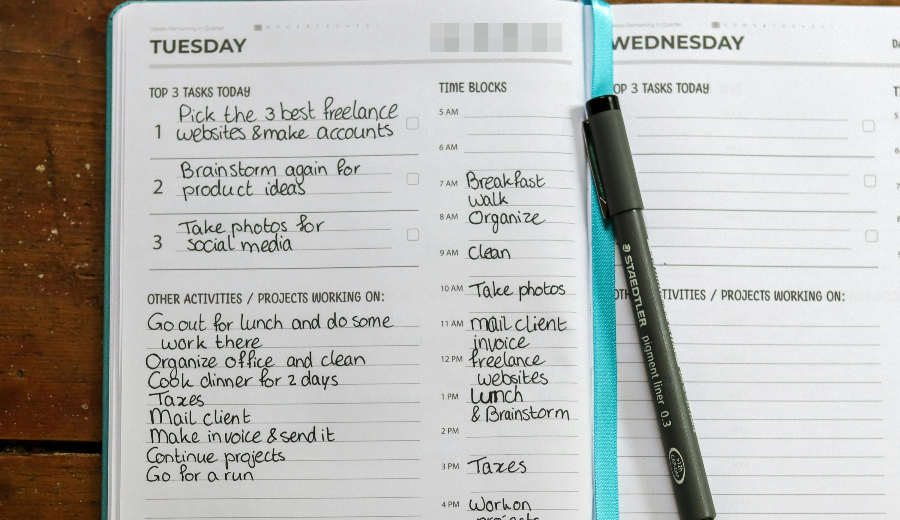 TUESDAY
TOP 3 TASKS TODAY
1 Pick the 3 best freelance
websites & make accounts
2 Brainstorm again for
product ideas
3 Take photos for
social media
OTHER ACTIVITIES / PROJECTS WORKING ON:
Go out for lunch and do some
work there
Organize office and clean
Cook dinner for 2 days
Taxes
Mail client
Make invoice & send it
Continue projects
Go for a run
TIME BLOCKS
5 AM
6 AM
7 AM Breakfast
walk
8 AM Organize
9 AM Clean
10 AM Take photos
11 AM mail client
invoice
12 PM freelance
websites
1 PM Lunch
& Brainstorm
2 PM
3 PM Taxes
4 PM Work on
projects
WEDNESDAY
OP 3 TASKS TODAY
TIVITIES / PROJECTS WORKING ON:
STAEDTLER pigment liner 0.3